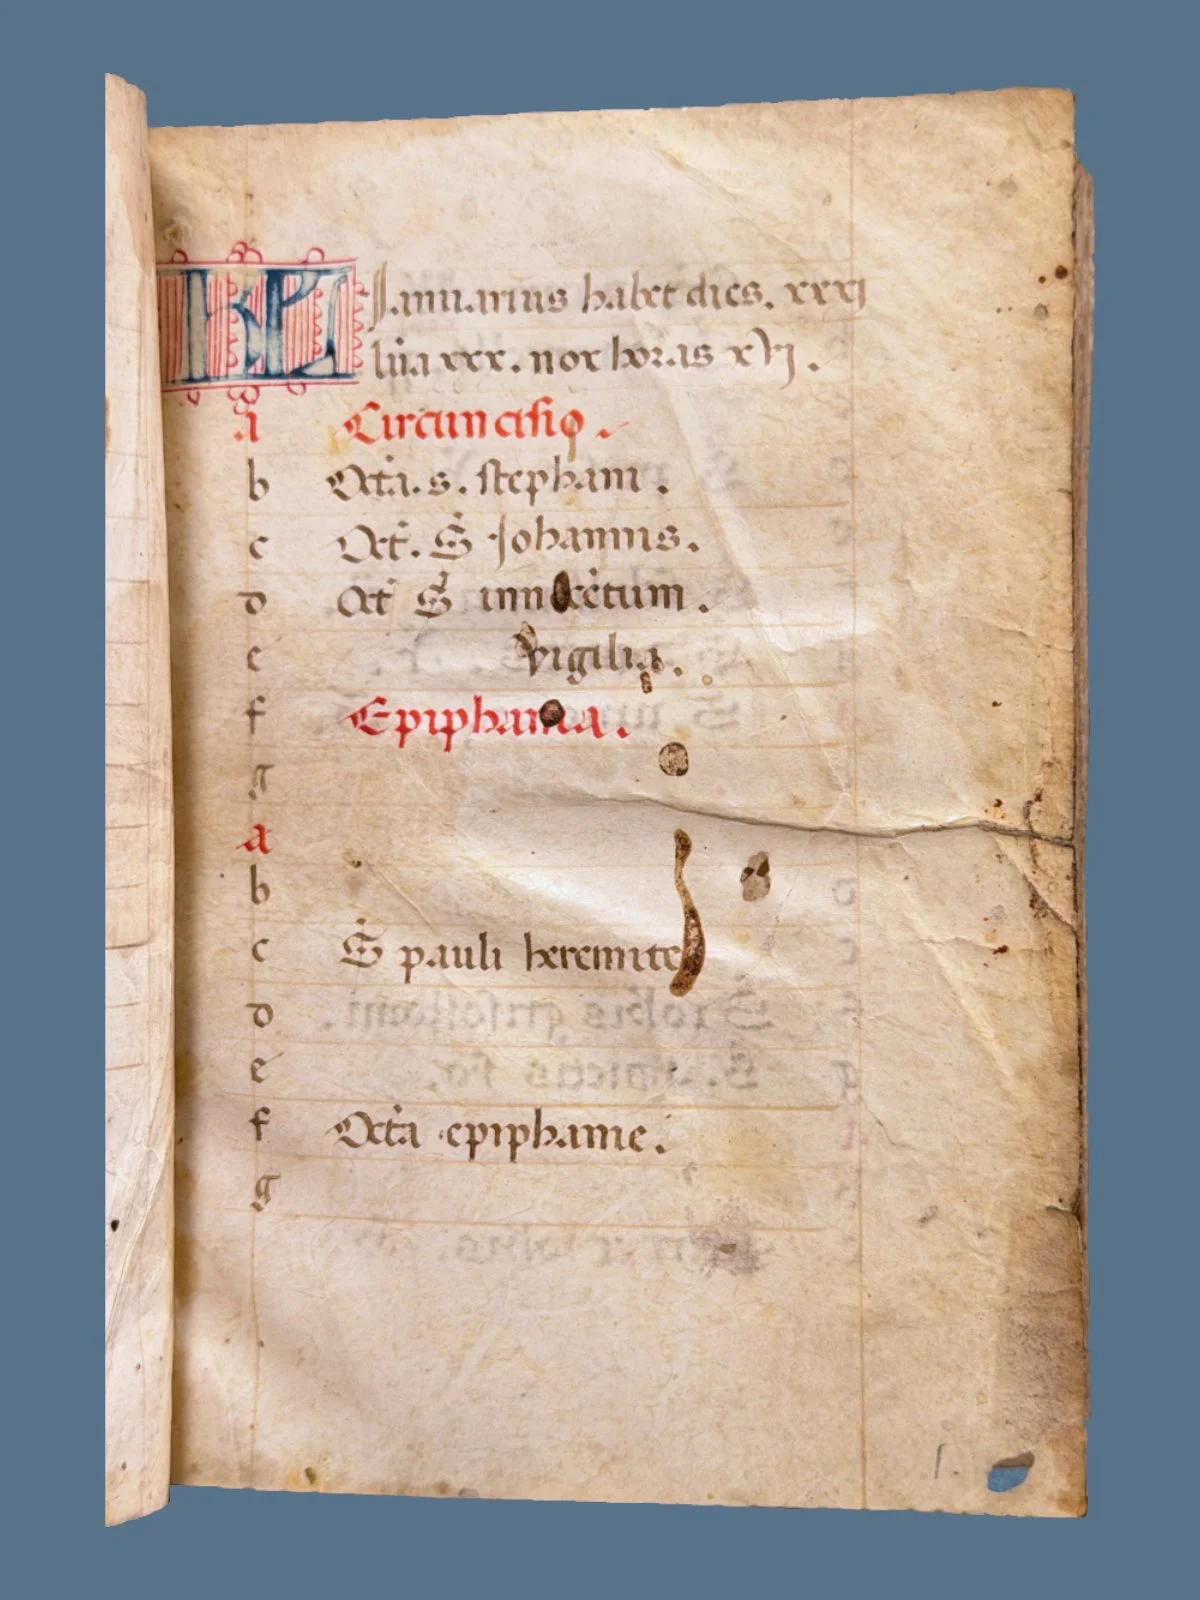 KL Januarius habet dies. xxxj
lũa xxx. nox horas xvj.
A Circumcisio.
b Octa. s. stephani.
c Oct. S Johannis.
d Oct S innocẽtum.
e vigilia.
f Epiphania.
g
a
b
c S pauli heremite
d
e
f Octa epiphanie.
g
1.